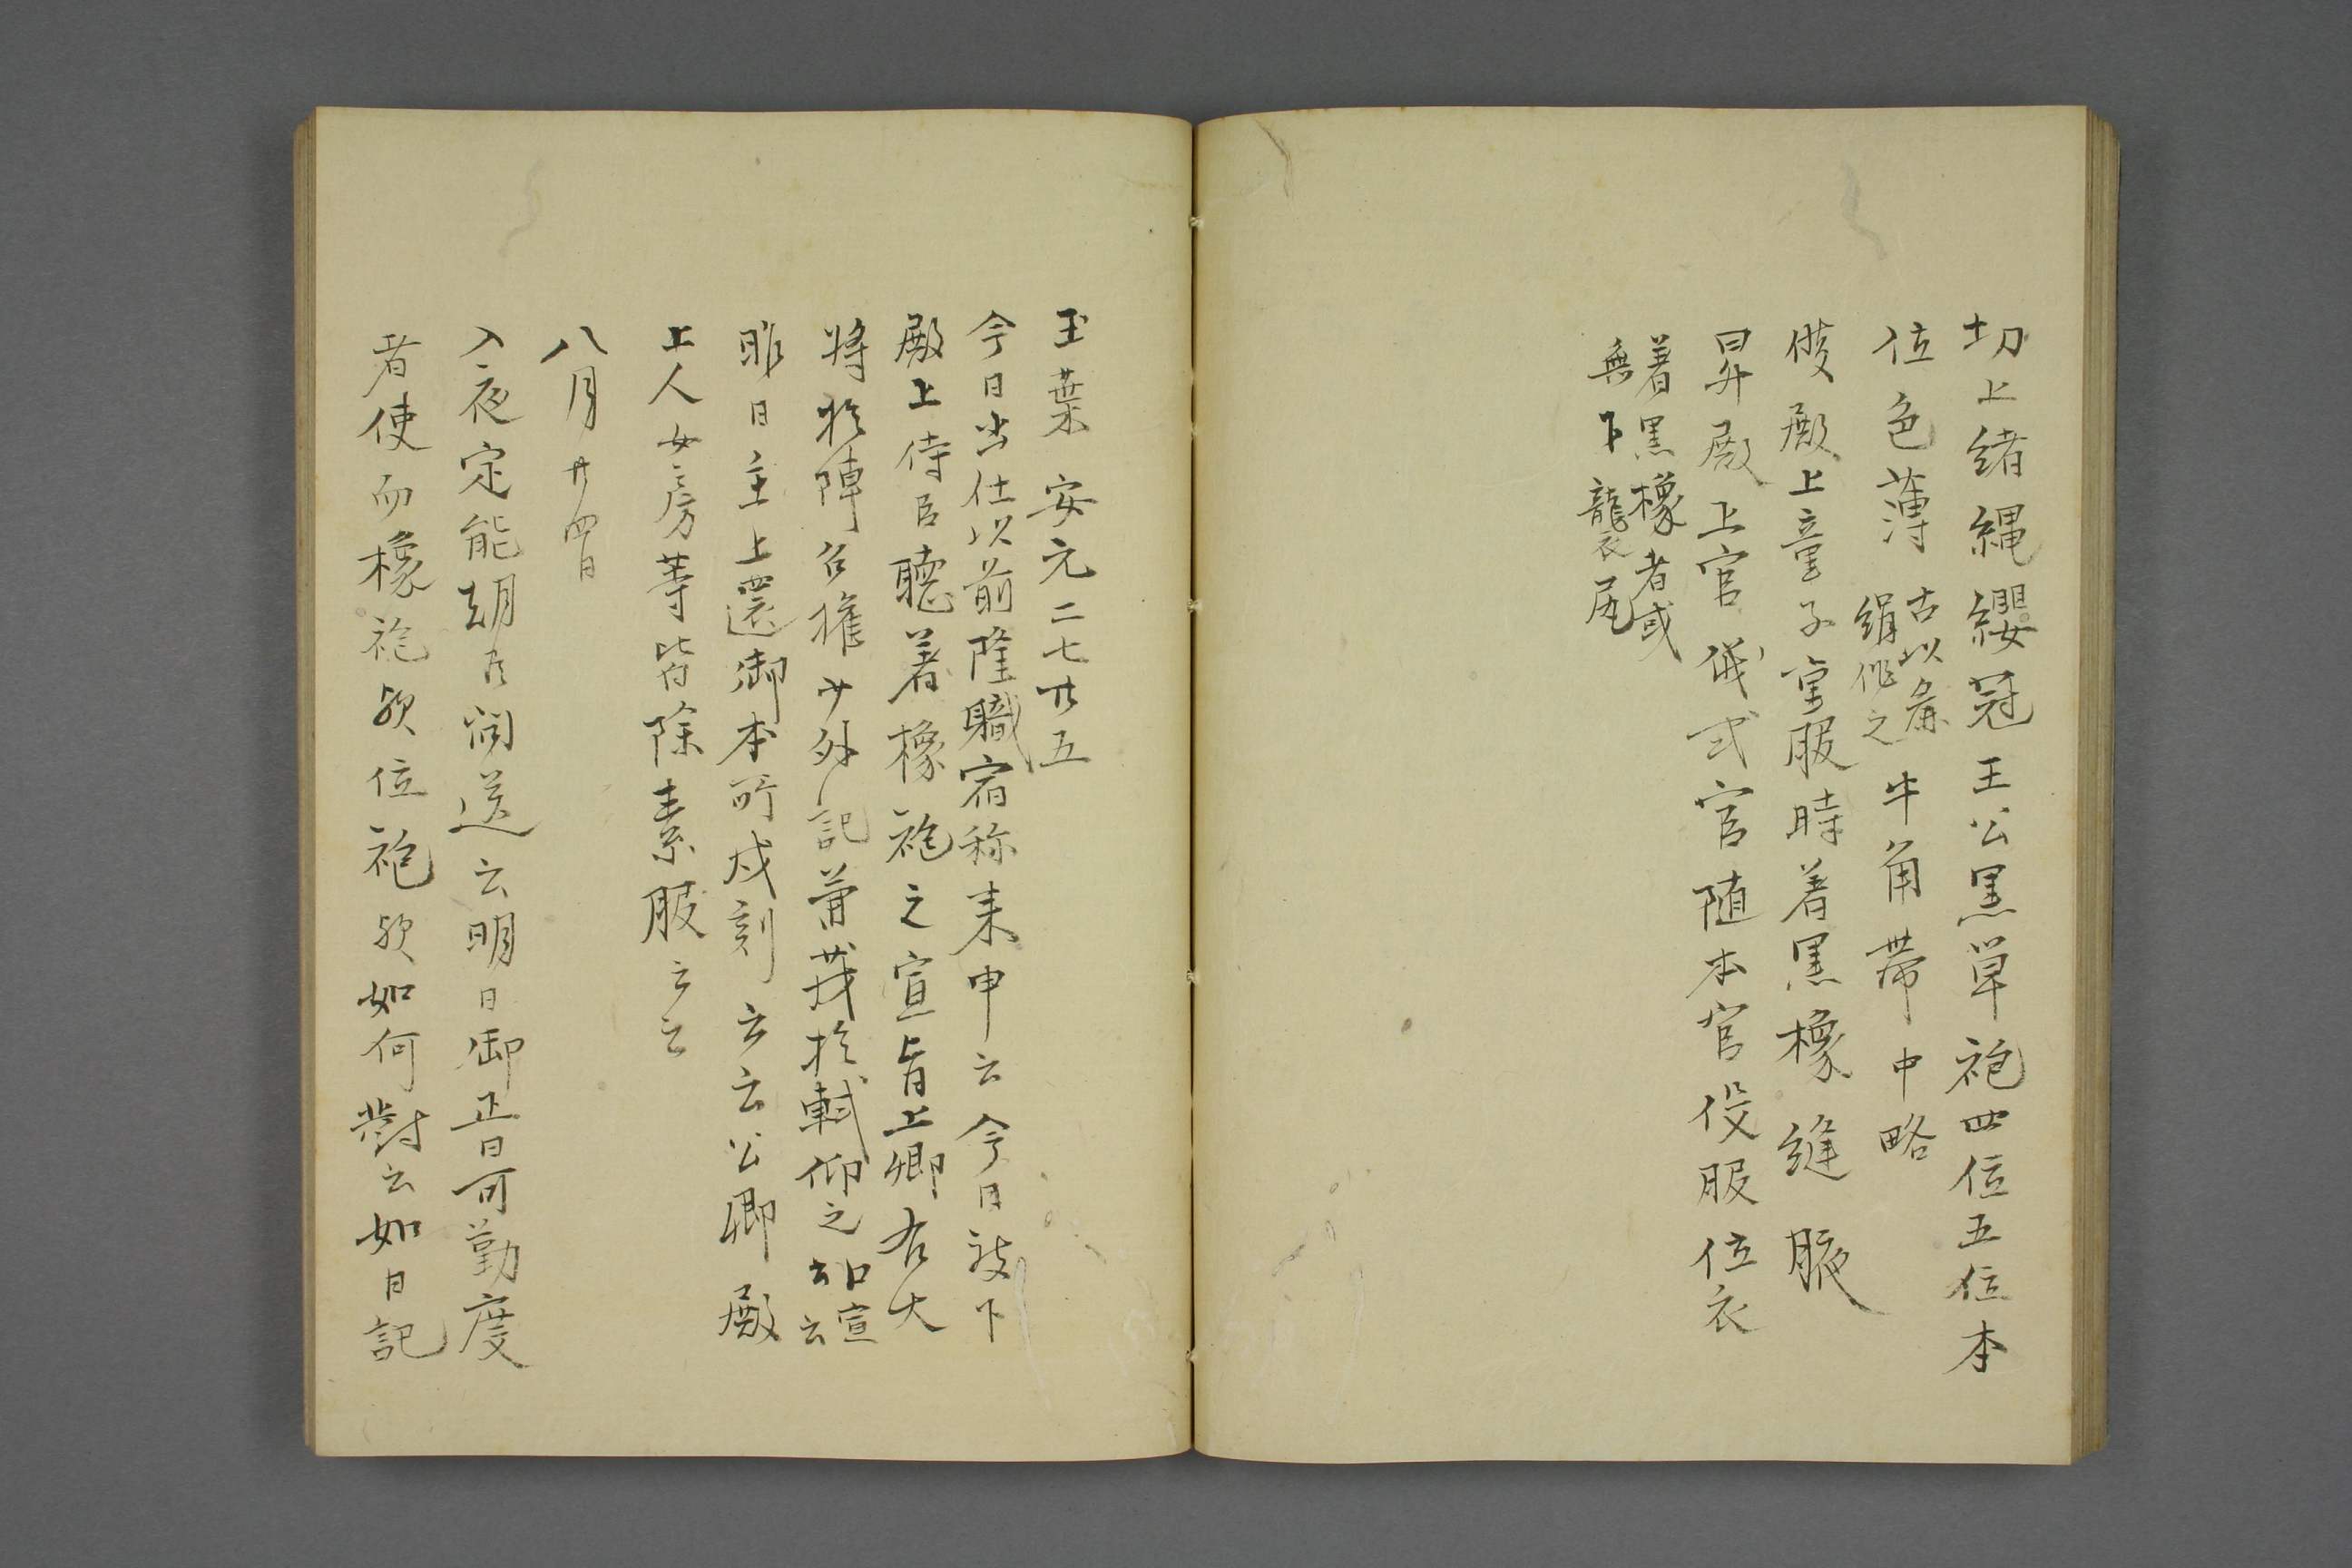 切上緒縄纓冠王公黒単袍四位五位本
位色薄古以麁絹作之牛角帯中略
侲殿上童子重服時着黒橡縫腋
昇殿上官儀式官随本官役服位衣
着黒橡者或
無下襲尻
玉葉安元二七廿五
今日出仕以前隆職宿祢来申云今日被下
殿上侍臣聴着橡袍之宣旨上卿右大
将於陣召権少外記兼茂於軾仰之口宣云云
昨日主上還御本所戌刻云云公卿殿
上人女房等皆除素服云云
八月廿四日
入夜定能朝臣問送云明日御正日可勤度
者使而橡袍歟位袍歟如何対云如日記